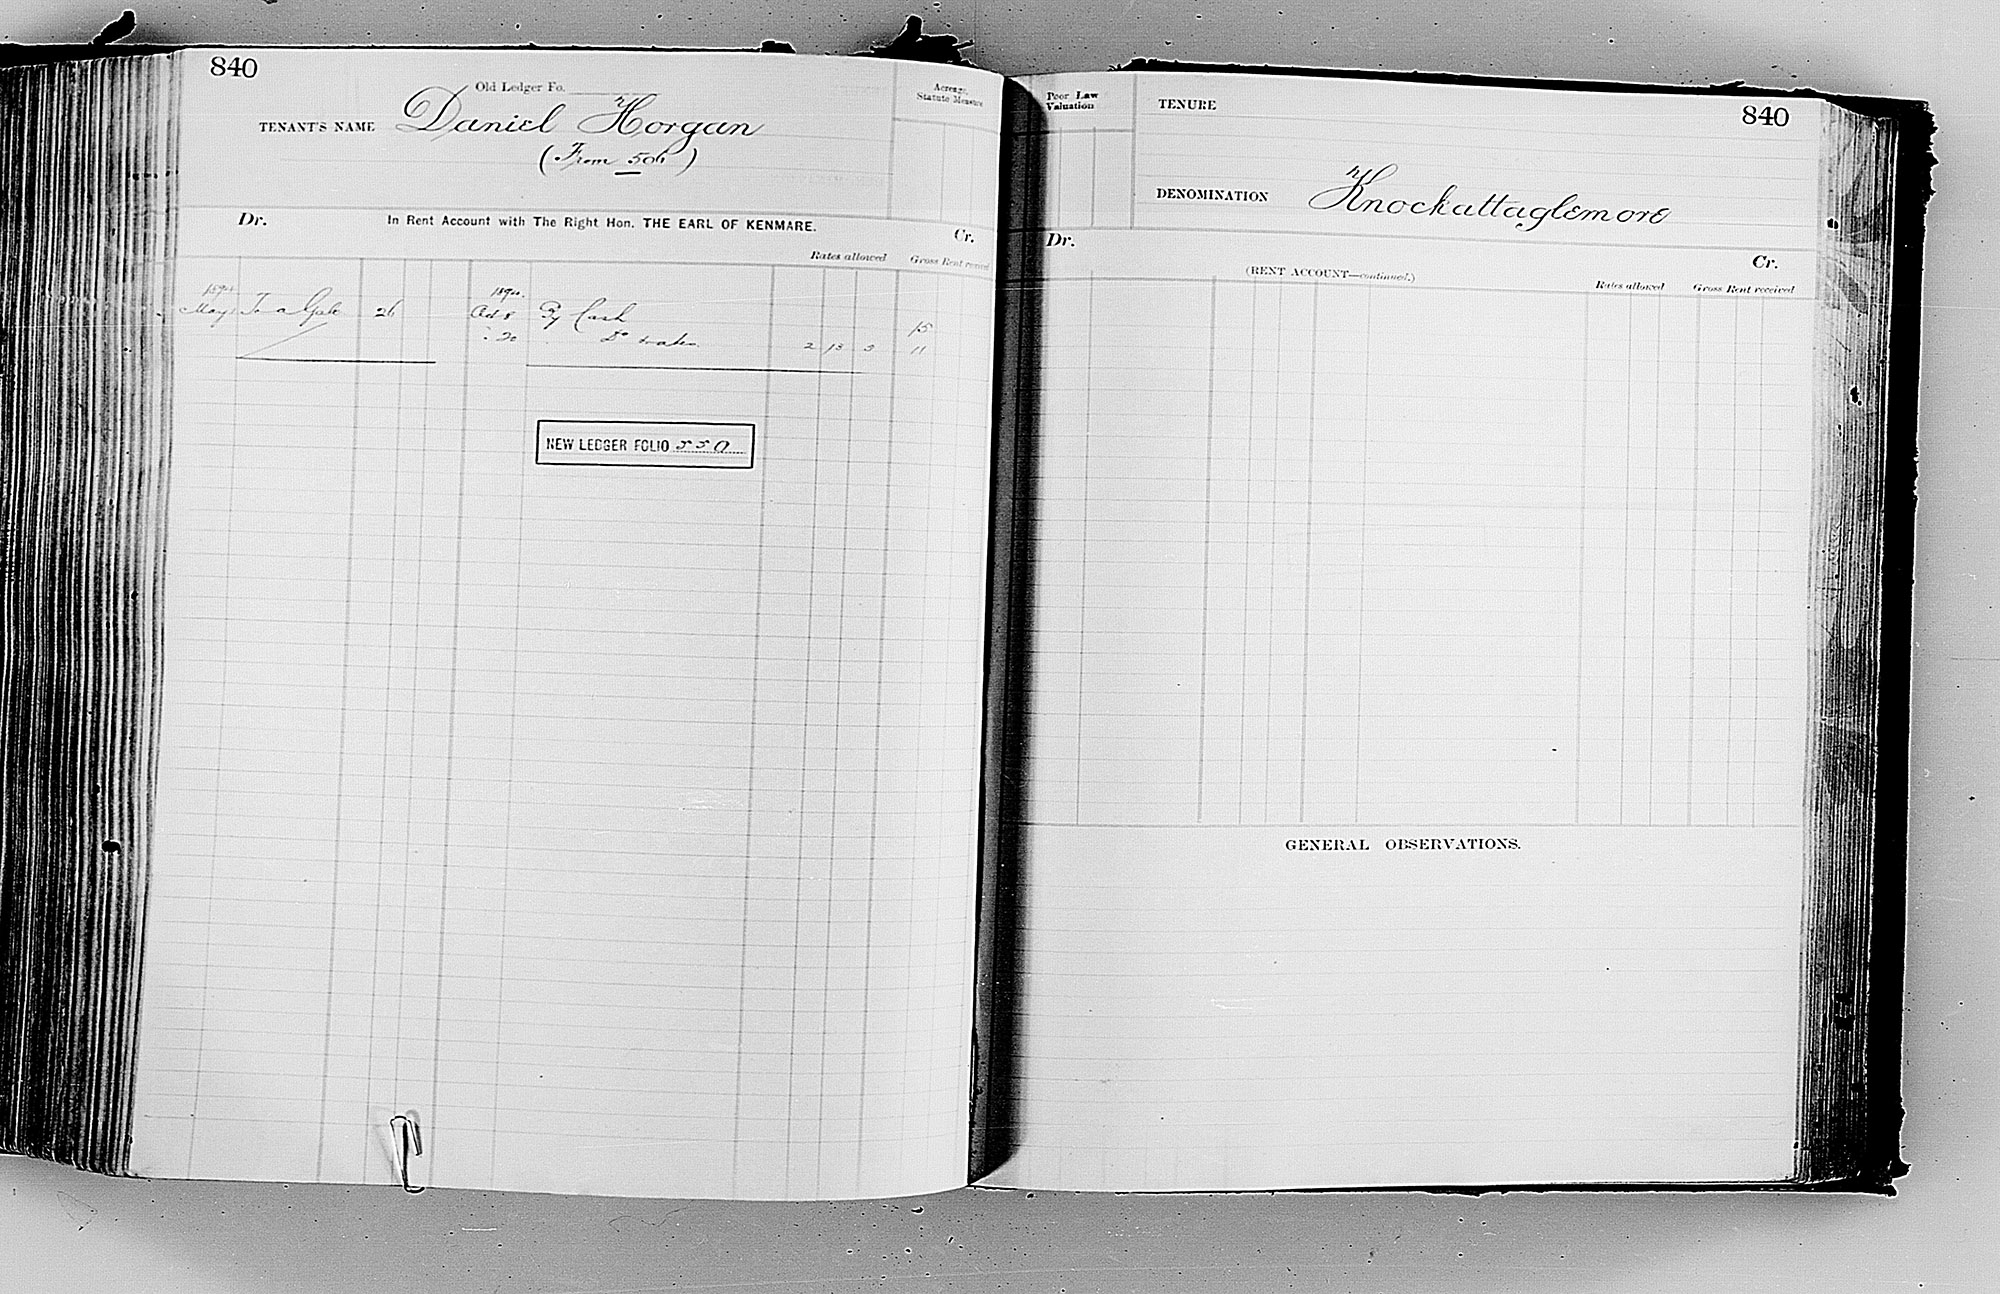 840
Old Ledger Fo.
TENANT'S NAME Daniel Horgan
(From 506)
Acreage, Statute Measure
Dr. In Rent Account with The Right Hon. THE EARL OF KENMARE. Cr.
Rates allowed Gross Rent received
May To a Gale 26
By Cash 15
20 Do 2 13 3 11
NEW LEDGER FOLIO 550
Poor Law Valuation
TENURE
840
DENOMINATION Knockattaglemore
Dr. (RENT ACCOUNT—continued.) Cr.
Rates allowed Gross Rent received
GENERAL OBSERVATIONS.